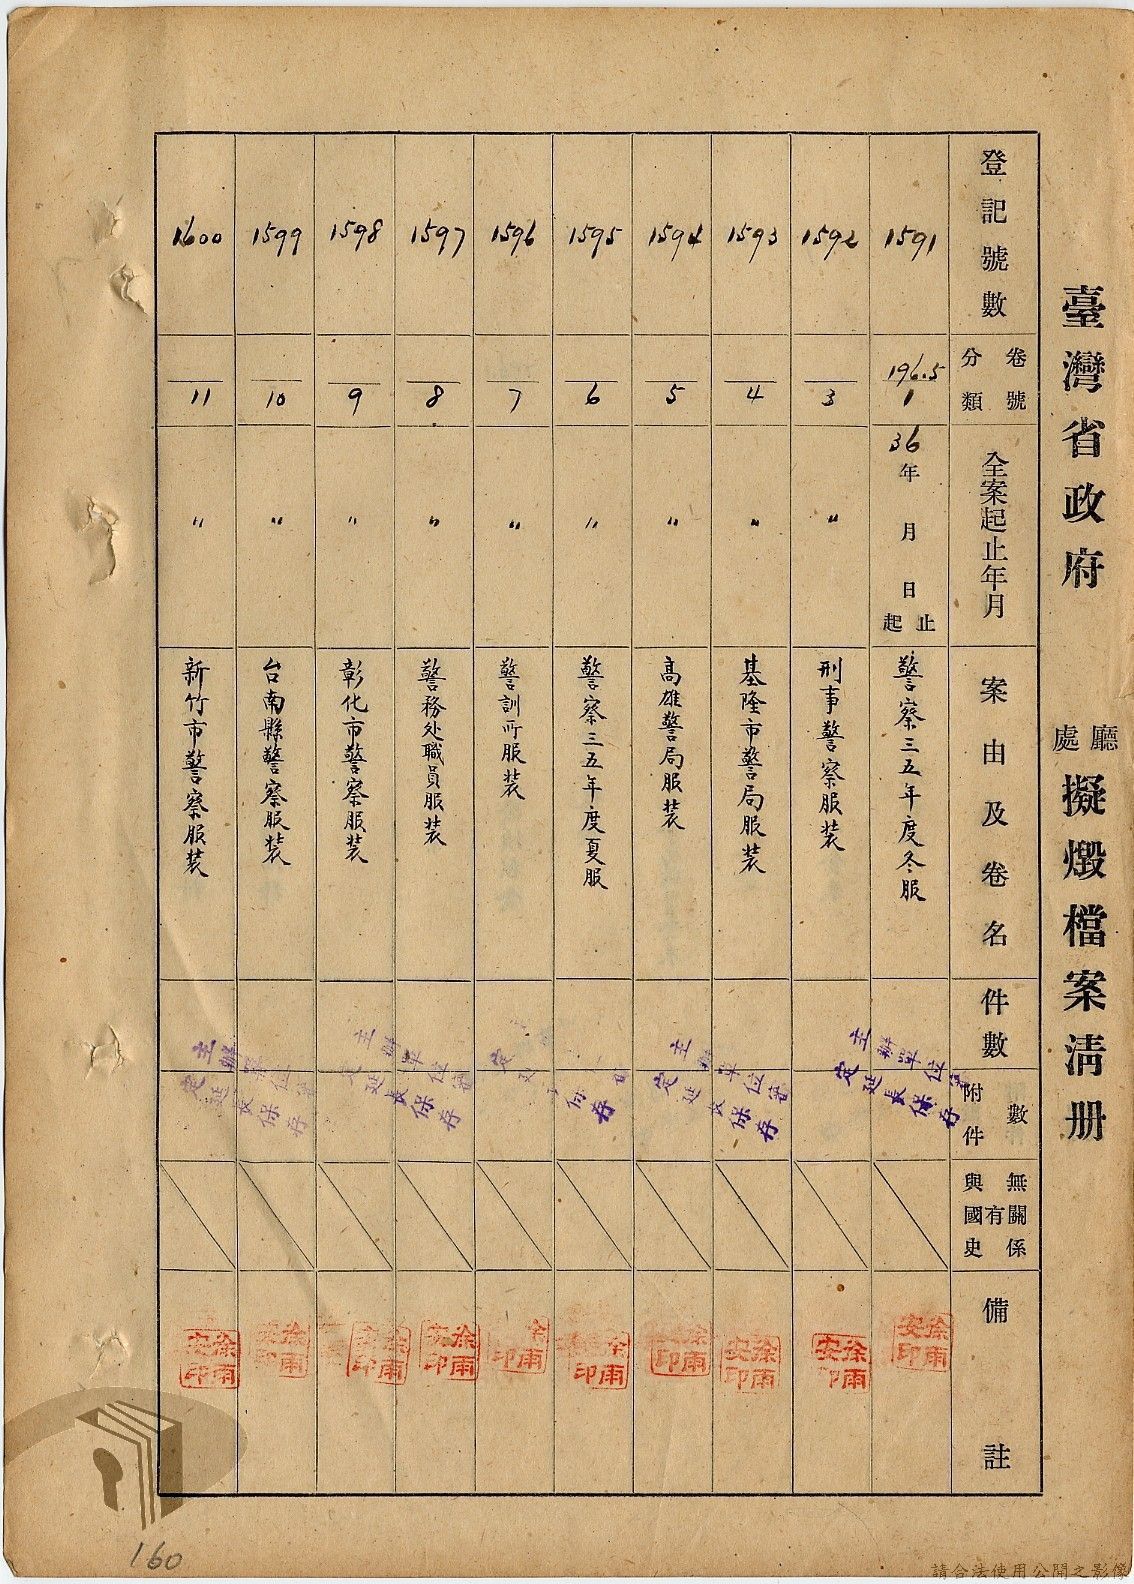 臺灣省政府 廳處 擬燬檔案淸册
登記號數
卷號
分類
全案起止年月
案由及卷名
件數
附件數
與國史有無關係
備註
1591
196.5
1
36年 月 日
起止
警察三五年度冬服
主辦單位簽
定延長保存
徐雨安印
1592
3
〃
刑事警察服装
徐雨安印
1593
4
〃
基隆市警局服装
主辦單位簽
定延長保存
徐雨安印
1594
5
〃
高雄警局服装
徐雨安印
1595
6
〃
警察三五年度夏服
徐雨安印
1596
7
〃
警訓所服装
1597
8
〃
警務处職員服装
主辦單位簽
定延長保存
徐雨安印
1598
9
〃
彰化市警察服装
徐雨安印
1599
10
〃
台南縣警察服装
徐雨安印
1600
11
〃
新竹市警察服装
主辦單位簽
定延長保存
徐雨安印
160
請合法使用公開之影像